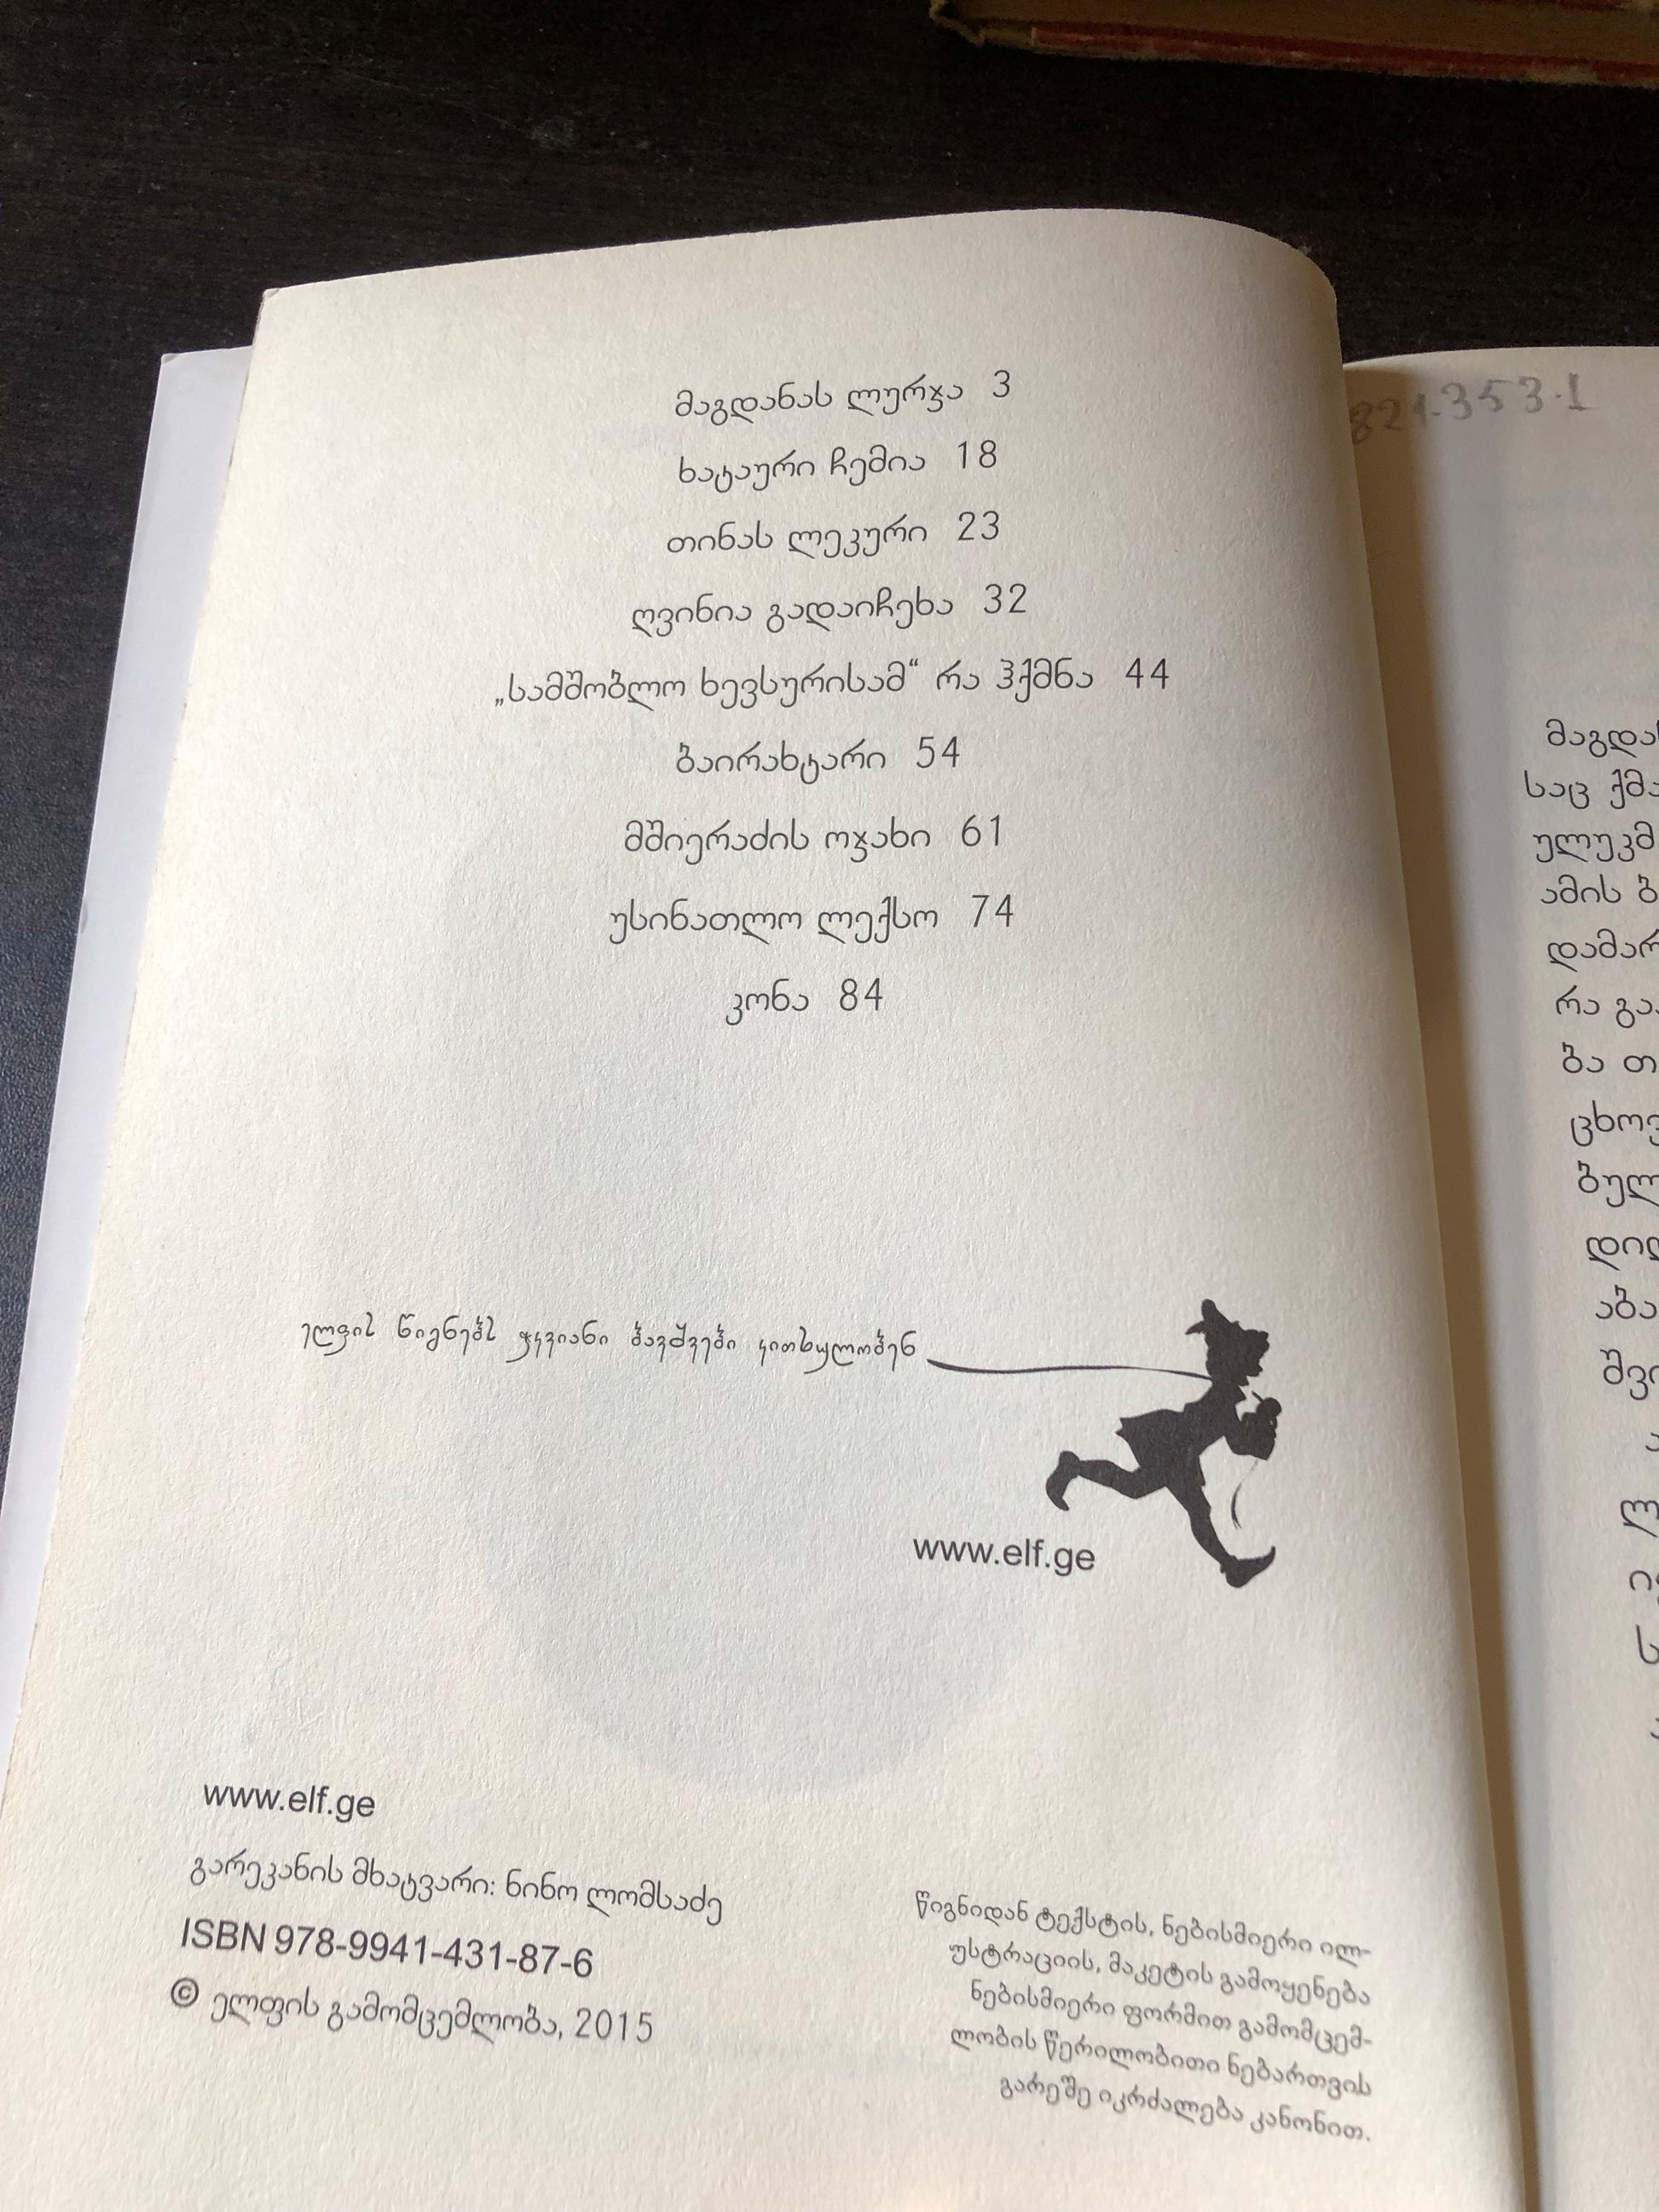 მაგდანას ლურჯა 3
ხატაური ჩემია 18
თინას ლეკური 23
ღვინია გადაიჩეხა 32
„სამშობლო ხევსურისამ“ რა ჰქმნა 44
ბაირახტარი 54
მშიერაძის ოჯახი 61
უსინათლო ლექსო 74
კონა 84
ელფის წიგნებს ჭკვიანი ბავშვები კითხულობენ
www.elf.ge
www.elf.ge
გარეკანის მხატვარი: ნინო ლომსაძე
ISBN 978-9941-431-87-6
© ელფის გამომცემლობა, 2015
წიგნიდან ტექსტის, ნებისმიერი ილ-
უსტრაციის, მაკეტის გამოყენება
ნებისმიერი ფორმით გამომცემ-
ლობის წერილობითი ნებართვის
გარეშე იკრძალება კანონით.
821.353.1
საც
ამის
რა
ბა